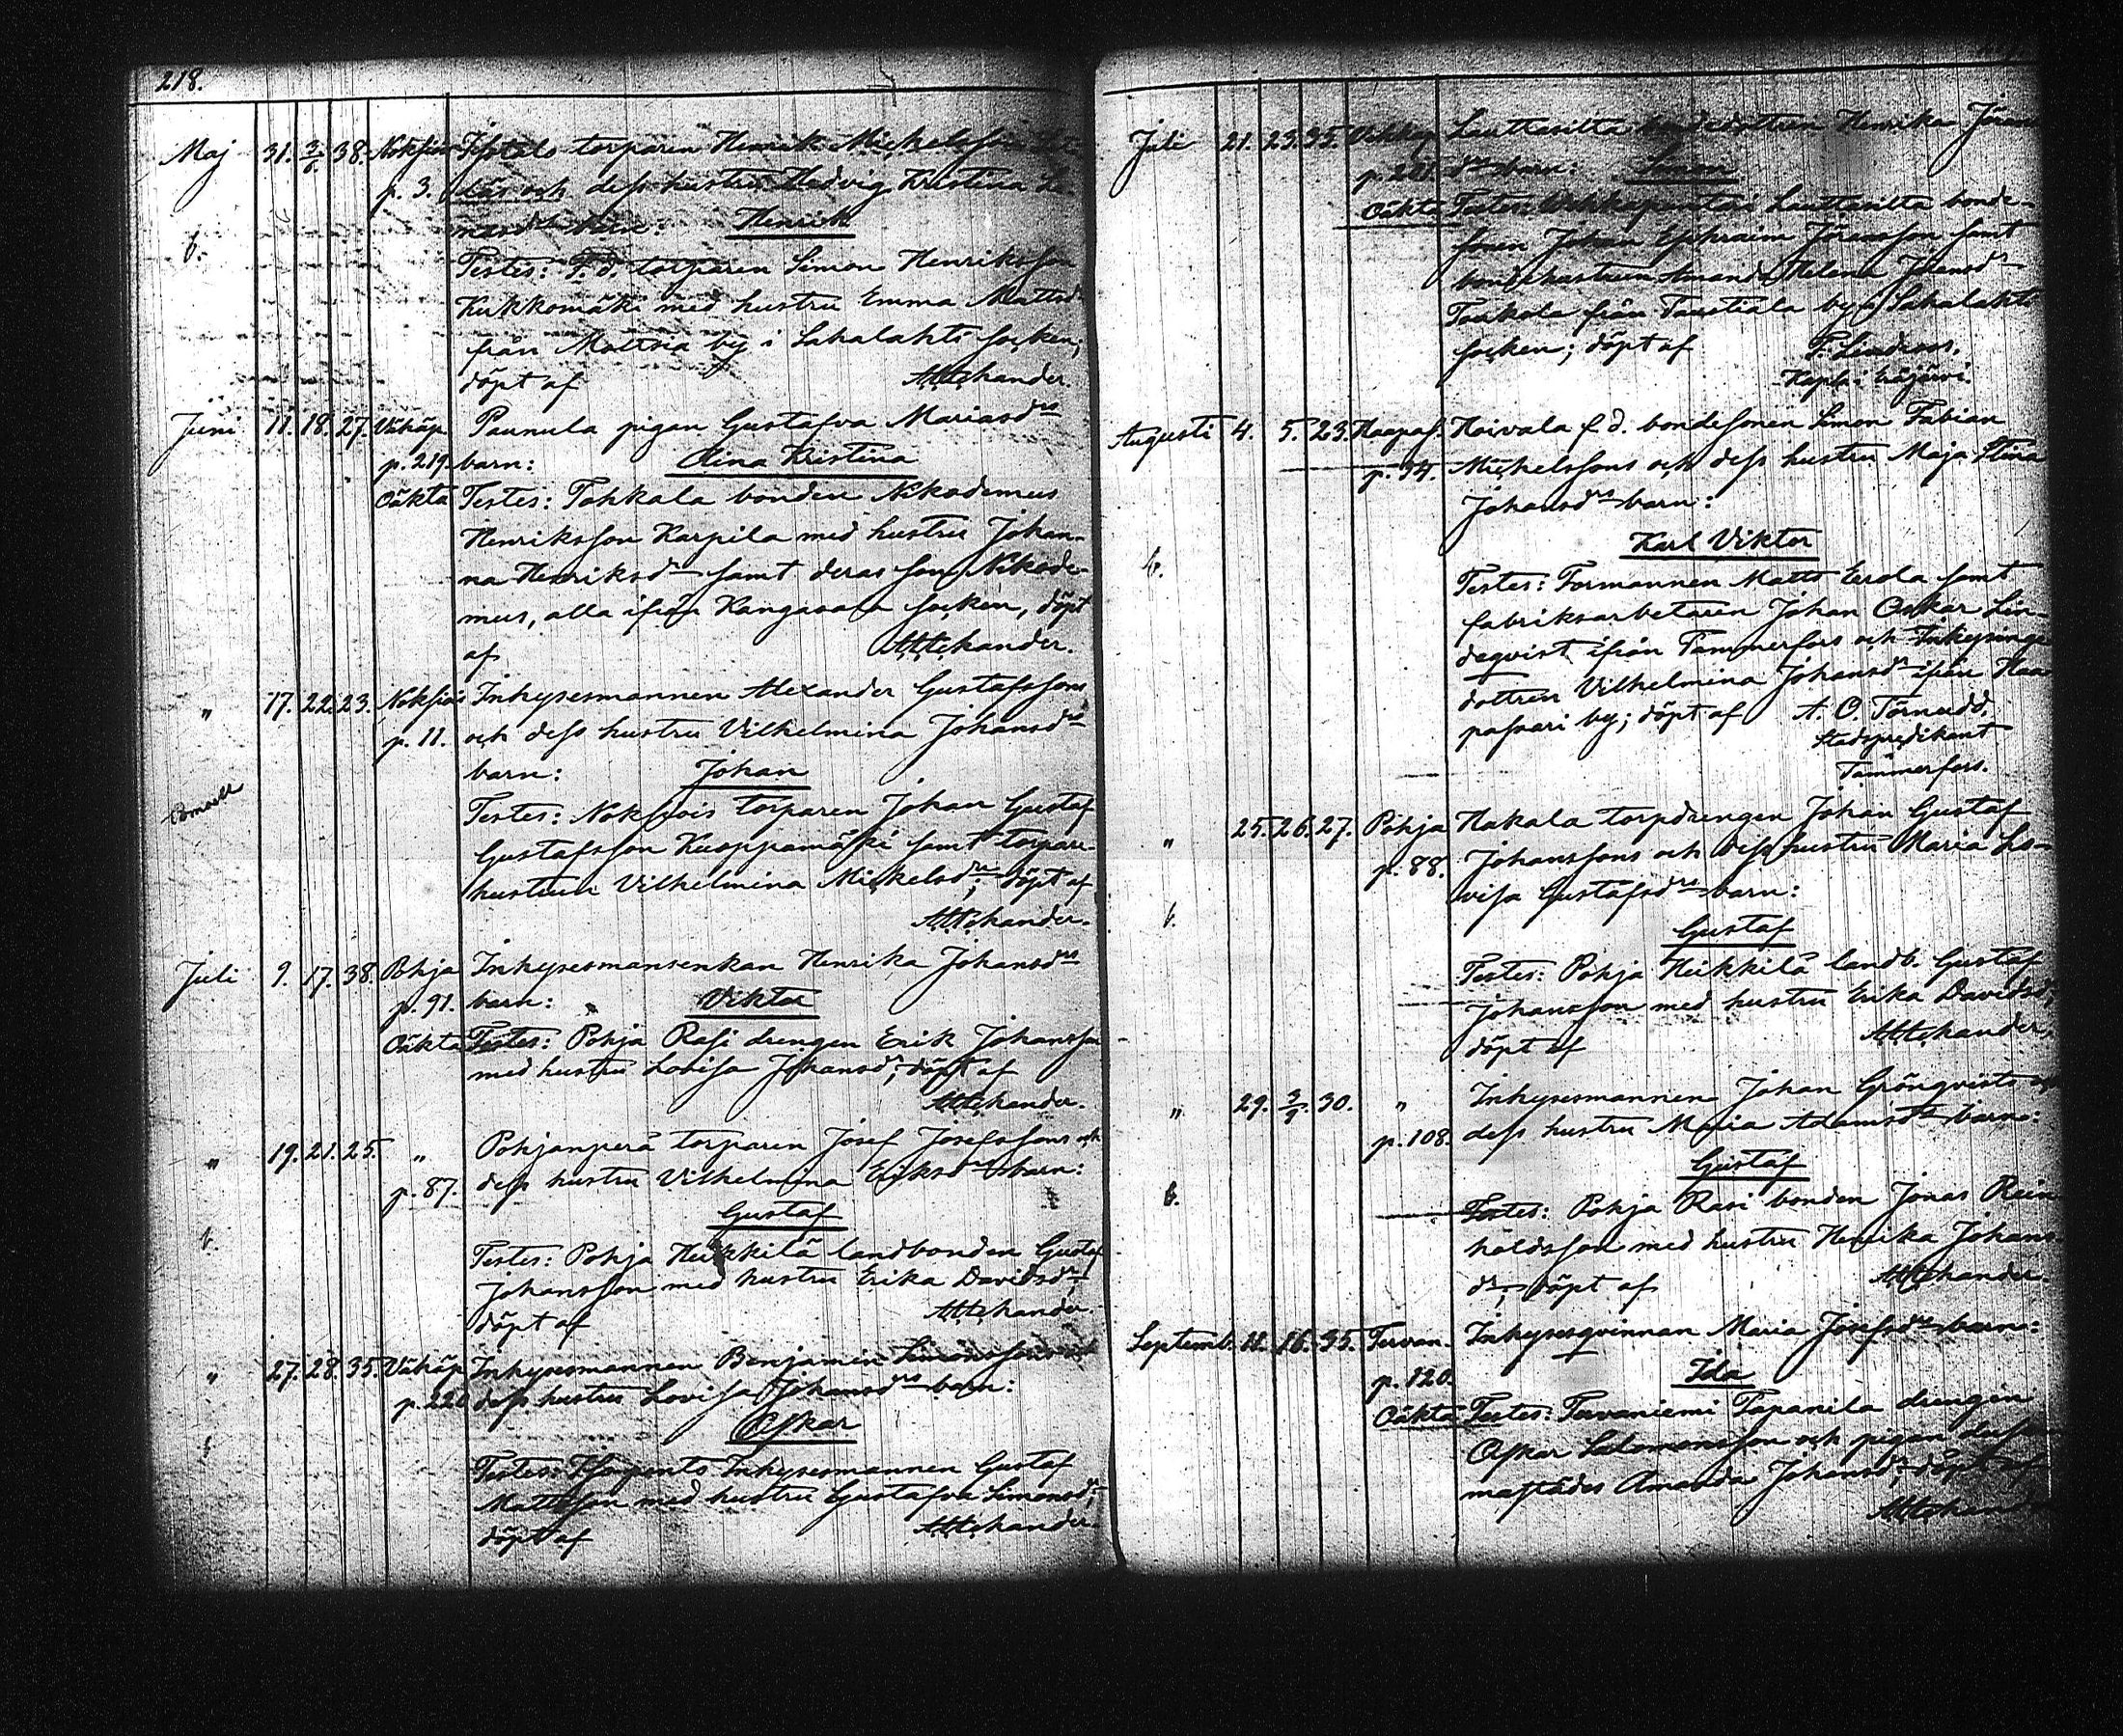 218.
Maj 31. 3/6. 38. Noksiois torparen Henrik Mickelsson
p. 3. och dess hustru Hedvig Kristina
barn: Henrik
b.
Testes: F. d. torparen Simon Henriksson
Kukkomäki med hustru Emma Mattsdr
från Mattvia by i Sahalahti socken;
döpt af
Juni 11. 18. 27. Vähäp. Paunula pigan Gustafva Mariasdrs
p. 219. barn: Aina Kristina
Oäkta Testes: Tohkala bonden Nikodemus
Henriksson Karpila med hustru Johan-
na Henriksdr samt deras son Nikode-
mus, alla ifrån Kangasala socken, döpt
af
" 17. 22. 23. Noksiois Inhysesmannen Alexander Gustafssons
p. 11. och dess hustru Vilhelmina Johansdrs
barn: Johan
Testes: Noksiois torparen Johan Gustaf
Gustafsson Kuoppamäki samt torpare-
hustrun Vilhelmina Mickelsdr; döpt af
Juli 9. 17. 38. Pohja Inhysesmansenkan Henrika Johansdrs
p. 91. barn: Viktor
Oäkta Testes: Pohja Rasi drengen Erik Johansson
med hustru Lovisa Johansdr; döpt af
" 19. 21. 25. " Pohjanperä torparen Josef Josefssons och
p. 87. dess hustru Vilhelmina Eriksdrs barn:
Gustaf
b.
Testes: Pohja Heikkilä landbonden Gustaf
Johansson med hustru Erika Davidsdr;
döpt af
" 27. 28. 35. Vähäp. Inhysesmannen Benjamin Simonssons och
p. 220 dess hustru Lovisa Johansdrs barn:
Oskar
Testes: Inhysesmannen Gustaf
Mattsson med hustru Gustafva Simonsdr;
döpt af
Juli 21. 23. 35. Lauttasilta bondedottren Henrika
p. 201. drs barn: Simon
Oäkta Testes: Lauttasilta bonde-
sonen Johan Ephraim Jöransson samt
bondehustrun Amanda Helena
från by i Sahalahti
socken; döpt af F. Lindroos.
Kapl. i Eräjärvi.
Augusti 4. 5. 23. Haapas. Hoivala f. d. bondesonen Simon Fabian
p. 34. Mickelssons och dess hustru Maja Stina
Johansdrs barn:
Karl Viktor
b.
Testes: Formannen Matts Eerola samt
fabriksarbetaren Johan Oskar Lin-
deqvist ifrån Tammerfors och Inhysinge
dottren Vilhelmina Johansdr ifrån Haa-
pasaari by; döpt af A. O. Törnudd.
Stadspredikant
Tammerfors.
" 25. 26. 27. Pohja Hakala torpdrengen Johan Gustaf
p. 88. Johanssons och dess hustru Maria Lo-
visa Gustafsdrs barn:
b.
Gustaf
Testes: Pohja Heikkilä landb. Gustaf
Johansson med hustru Erika Davidsdr;
döpt af
" 29. 3/9. 30. " Inhysesmannen Johan Grönqvists och
p. 108. dess hustru Maria Adamsdrs barn:
Gustaf
b.
Testes: Pohja Rasi bonden Jonas Rein-
holdsson med hustru Henrika Johans-
dr; döpt af
Septemb. 11. 16. 35. Tervan. Inhysesqvinnan Maria Josefsdrs barn:
p. 120. Ida
Oäkta Testes: Tervaniemi Tapanila drengen
Oskar Salomonsson och pigan
Amanda Johansdr; döpt af